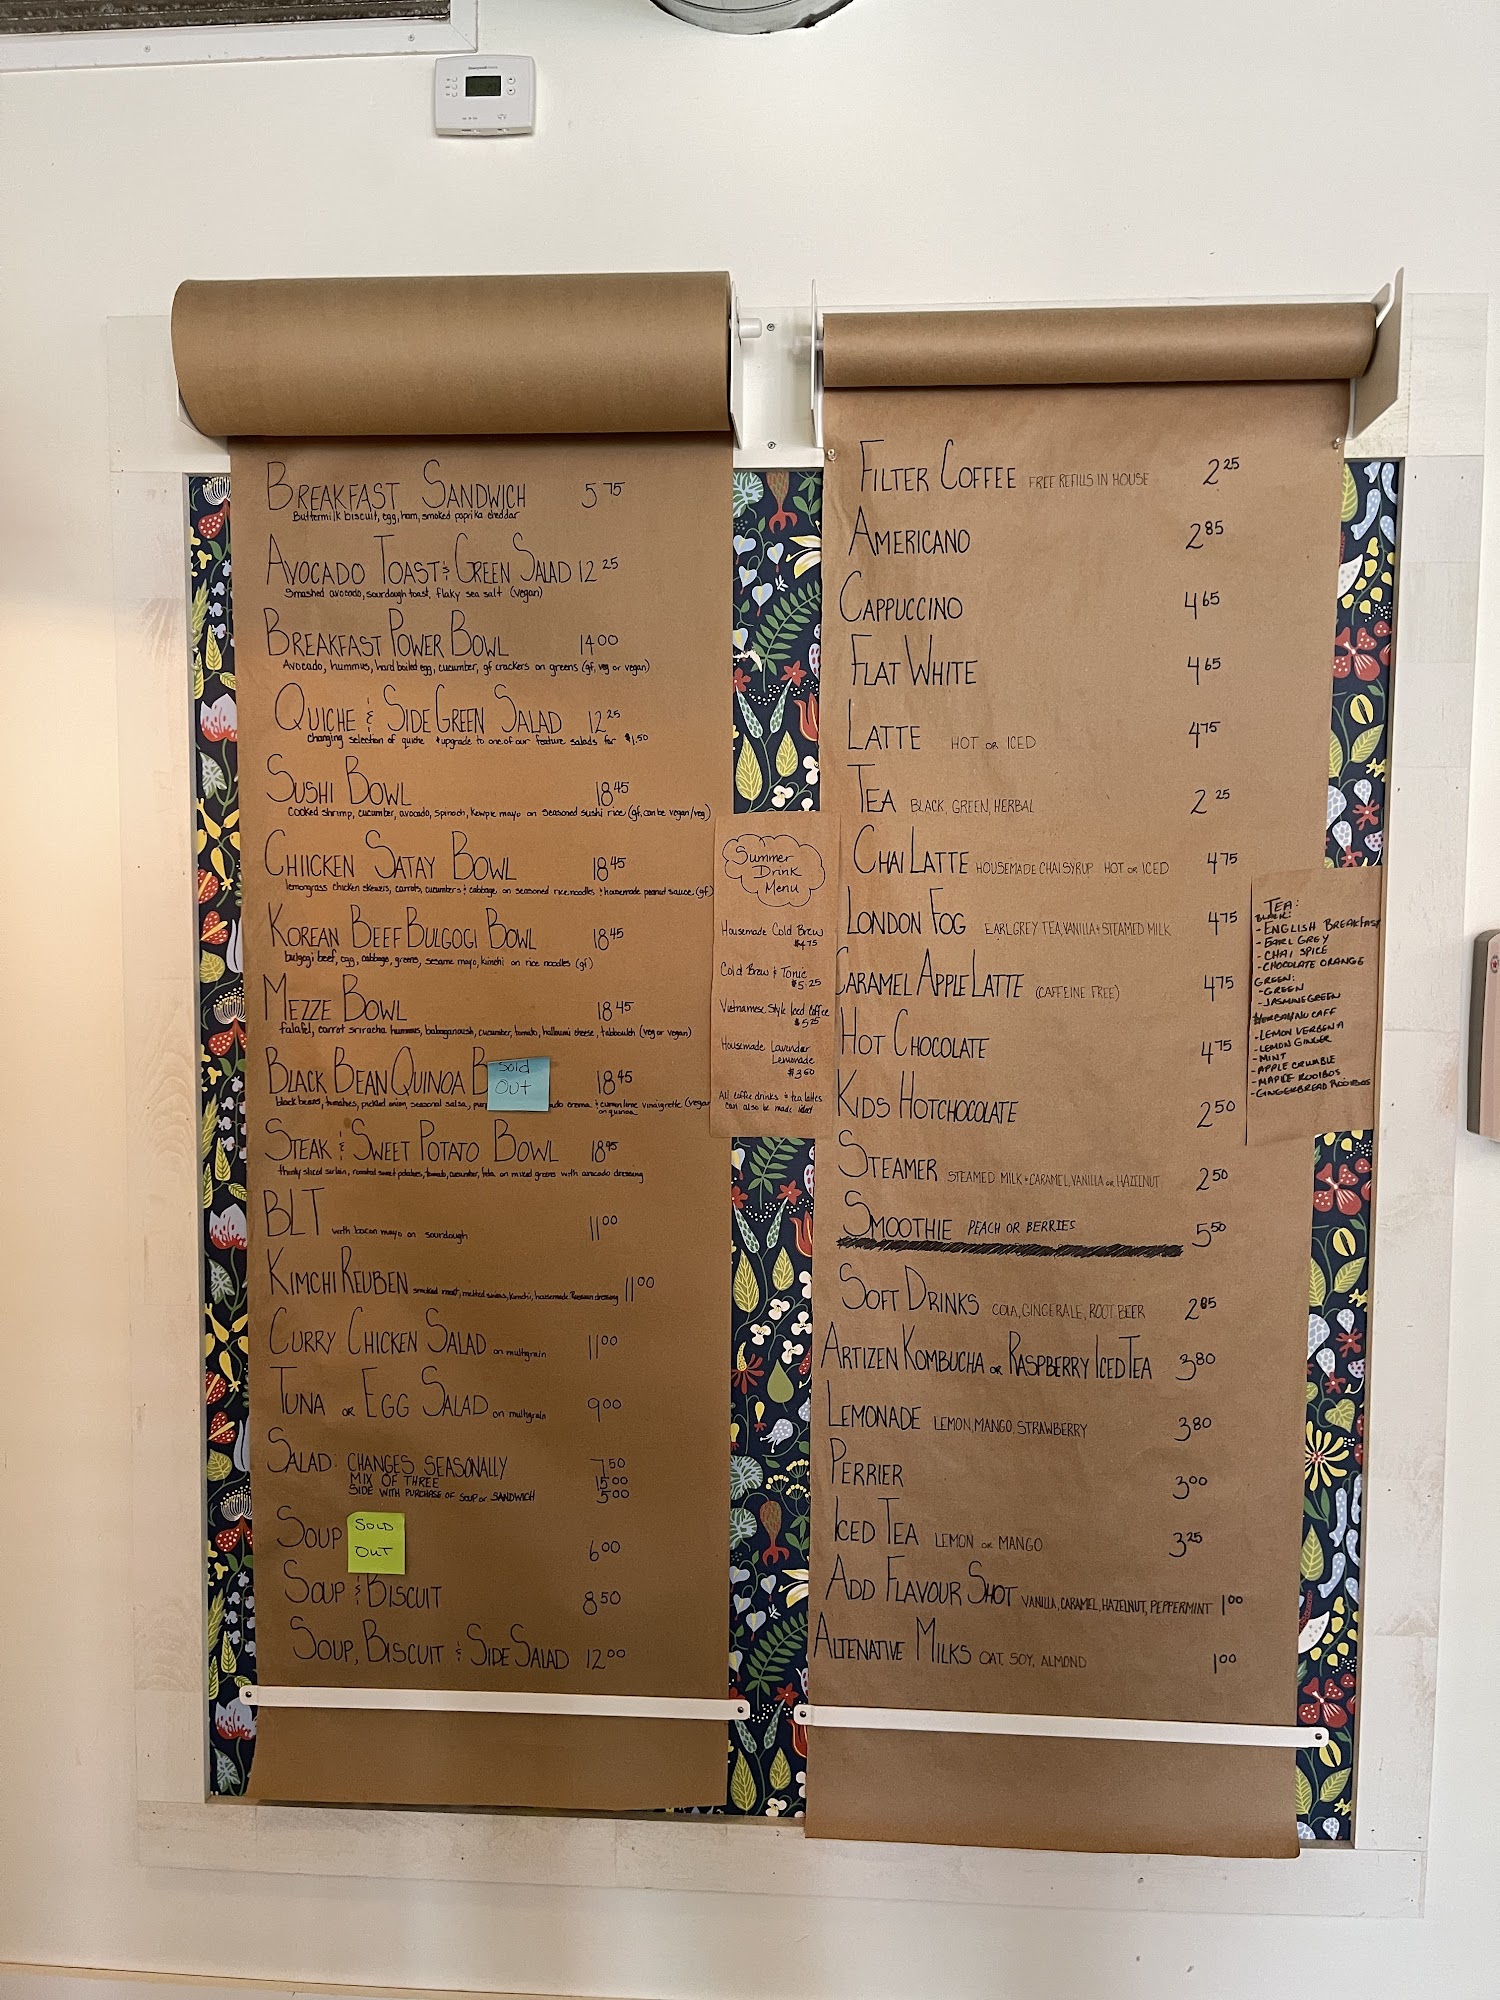 BREAKFAST SANDWICH 5 75
Buttermilk biscuit, egg, ham, smoked paprika cheddar
AVOCADO TOAST & GREEN SALAD 12 25
Smashed avocado, sourdough toast, flaky sea salt (vegan)
BREAKFAST POWER BOWL 14 00
Avocado, hummus, hard boiled egg, cucumber, gf crackers on greens (gf, veg or vegan)
QUICHE & SIDE GREEN SALAD 12 25
Changing selection of quiche + upgrade to one of our feature salads for $1.50
SUSHI BOWL 18 45
Cooked shrimp, cucumber, avocado, spinach, kewpie mayo on seasoned sushi rice (gf, can be vegan/veg)
CHIICKEN SATAY BOWL 18 45
lemongrass chicken skewers, carrots, cucumbers & cabbage on seasoned rice noodles & homemade peanut sauce (gf)
KOREAN BEEF BULGOGI BOWL 18 45
bulgogi beef, egg, cabbage, greens, sesame mayo, kimchi on rice noodles (gf)
MEZZE BOWL 18 45
falafel, carrot sriracha hummus, babaganoush, cucumber, tomato, halloumi cheese, tabbouleh (veg or vegan)
BLACK BEAN QUINOA B 18 45
Sold
Out
black beans, tomatoes, pickled onion, seasonal salsa, crema & cumin lime vinaigrette (vegan
on quinoa
STEAK & SWEET POTATO BOWL 18 45
thinly sliced sirloin, roasted sweet potatoes, tomato, cucumber, feta on mixed greens with avocado dressing
BLT with bacon mayo on sourdough 11 00
KIMCHI REUBEN smoked meat, melted swiss, kimchi, housemade Russian dressing 11 00
CURRY CHICKEN SALAD on multigrain 11 00
TUNA OR EGG SALAD on multigrain 9 00
SALAD: CHANGES SEASONALLY 7 50
MIX OF THREE 15 00
SIDE WITH PURCHASE OF SOUP or SANDWICH 5 00
SOUP 6 00
SOLD
OUT
SOUP & BISCUIT 8 50
SOUP, BISCUIT & SIDE SALAD 12 00
Summer
Drink
Menu
Housemade Cold Brew
$4.75
Cold Brew & Tonic
$5.25
Vietnamese Style Iced Coffee
$5.25
Housemade Lavender
Lemonade
$3.60
All coffee drinks & tea lattes
can also be made iced!
FILTER COFFEE FREE REFILLS IN HOUSE 2 25
AMERICANO 2 85
CAPPUCCINO 4 65
FLAT WHITE 4 65
LATTE HOT OR ICED 4 75
TEA BLACK, GREEN, HERBAL 2 25
CHAI LATTE HOUSEMADE CHAI SYRUP HOT OR ICED 4 75
LONDON FOG EARL GREY TEA, VANILLA & STEAMED MILK 4 75
CARAMEL APPLE LATTE (CAFFEINE FREE) 4 75
HOT CHOCOLATE 4 75
KIDS HOTCHOCOLATE 2 50
STEAMER STEAMED MILK + CARAMEL, VANILLA OR HAZELNUT 2 50
SMOOTHIE PEACH OR BERRIES 5 50
SOFT DRINKS COLA, GINGERALE, ROOT BEER 2 85
ARTIZEN KOMBUCHA OR RASPBERRY ICED TEA 3 80
LEMONADE LEMON, MANGO, STRAWBERRY 3 80
PERRIER 3 00
ICED TEA LEMON OR MANGO 3 25
ADD FLAVOUR SHOT VANILLA, CARAMEL, HAZELNUT, PEPPERMINT 1 00
ALTENATIVE MILKS OAT, SOY, ALMOND 1 00
TEA:
BLACK:
- ENGLISH BREAKFAST
- EARL GREY
- CHAI SPICE
- CHOCOLATE ORANGE
GREEN:
- GREEN
- JASMINE GREEN
HERBAL/NO CAFF
- LEMON VERBENA
- LEMON GINGER
- MINT
- APPLE CRUMBLE
- MAPLE ROOIBOS
- GINGERBREAD ROOIBOS